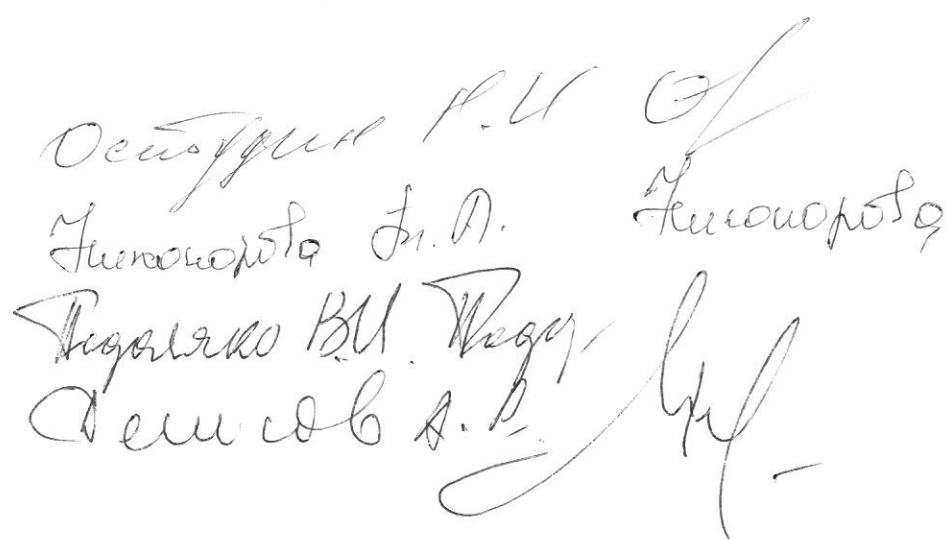 Остудин Н.И
Никонорова Н.А. Никонорова
Подоляко В.И. Подо
Денисов А.В.